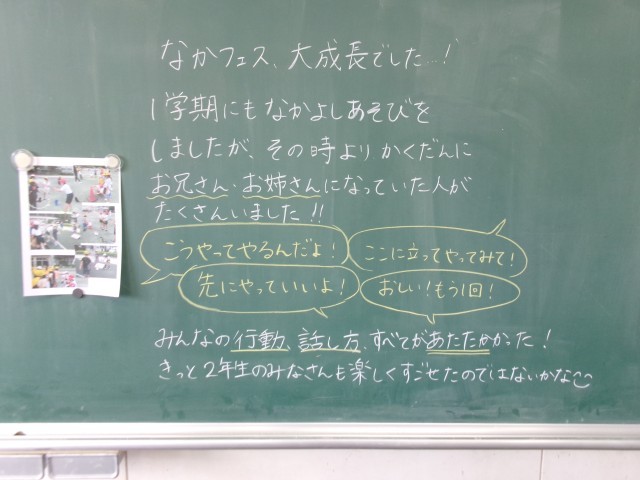 なかフェス、大成長でした…!
1学期にもなかよしあそびを
しましたが、その時よりかくだんに
お兄さん・お姉さんになっていた人が
たくさんいました!!
こうやってやるんだよ!
ここに立ってやってみて!
先にやっていいよ!
おしい!もう1回!
みんなの行動、話し方、すべてがあたたかかった!
きっと2年生のみなさんも楽しくすごせたのではないかな